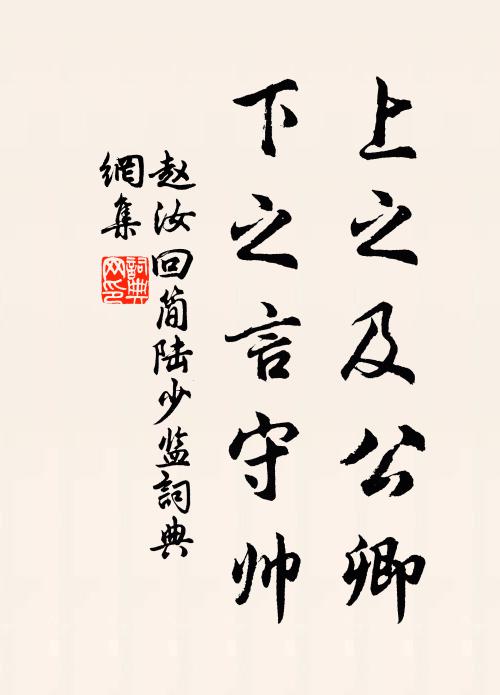 上之及公卿
下之言守帅
赵汝回简陆少监詞典
網集
詞典網印